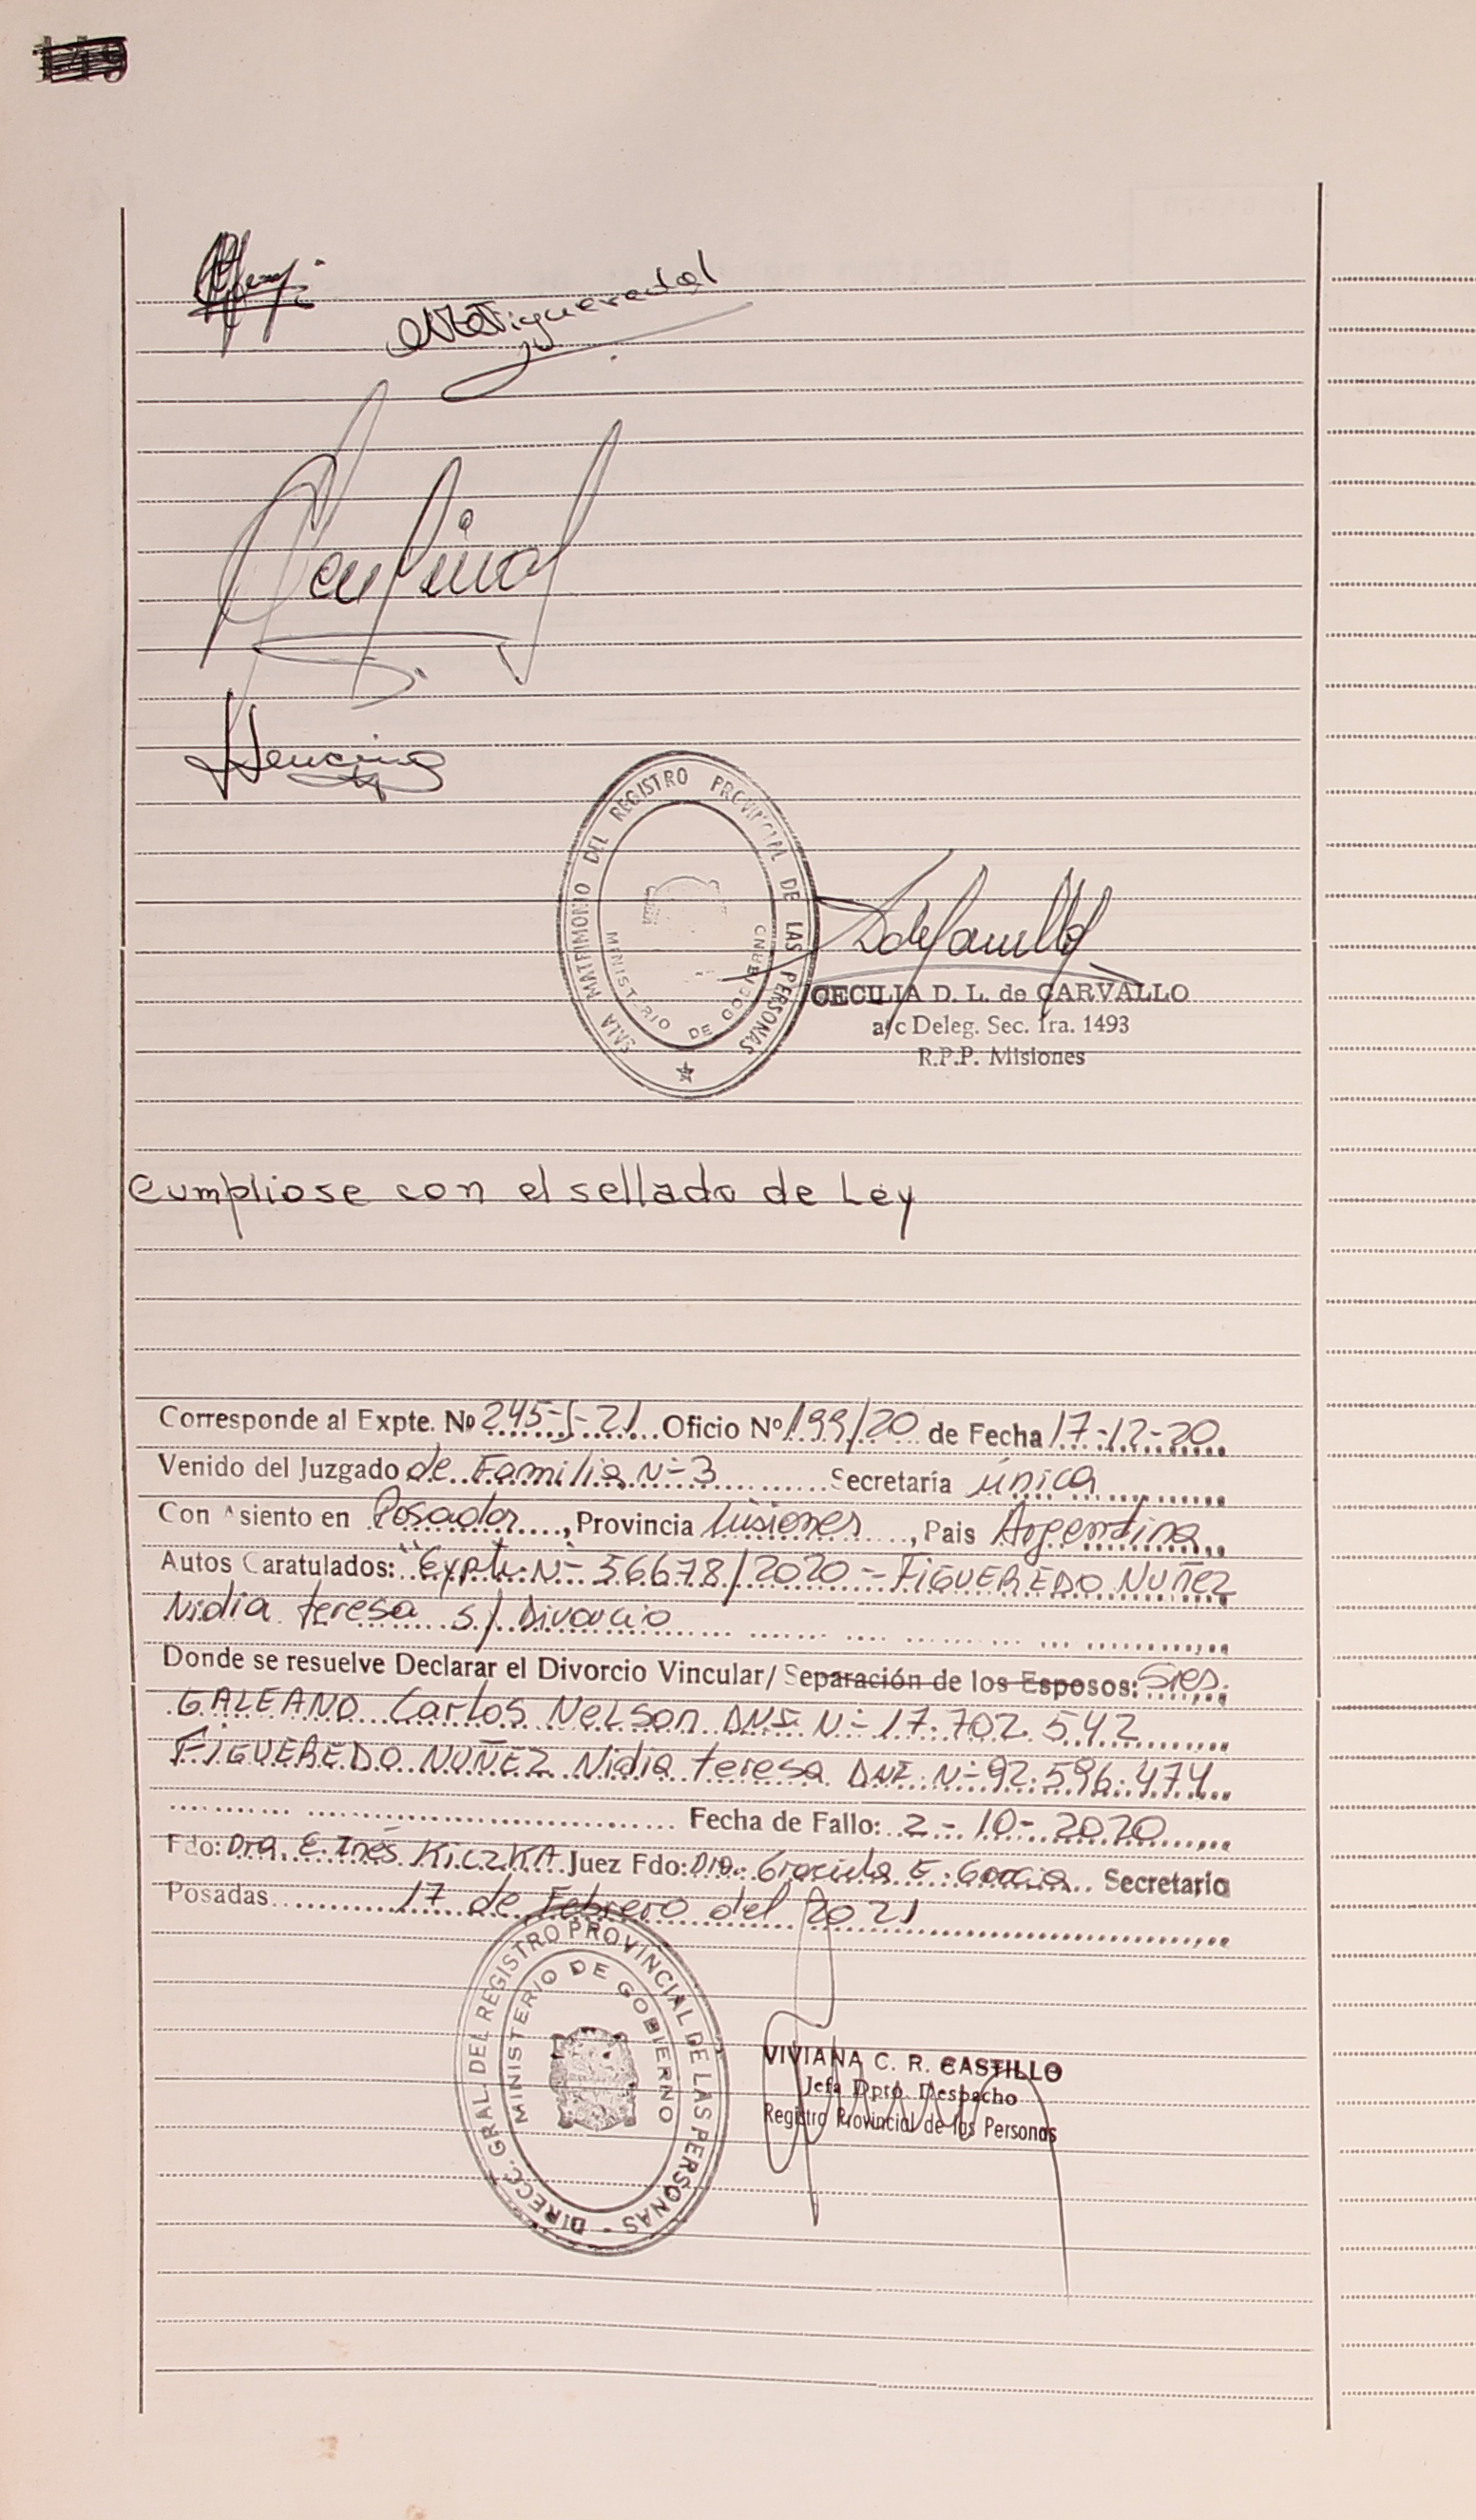 SALA MATRIMONIO DEL REGISTRO PROVINCIAL DE LAS PERSONAS
MINISTERIO DE GOBIERNO
CECILIA D. L. de CARVALLO
a/c Deleg. Sec. 1ra. 1493
R.P.P. Misiones
Cumpliose con el sellado de Ley
Corresponde al Expte. Nº 245-J-21 Oficio Nº 199/20 de Fecha 17-12-20
Venido del Juzgado de Familia Nº 3 Secretaría única
Con Asiento en Posadas, Provincia Misiones, Pais Argentina
Autos Caratulados: "Expte. Nº 56678/2020 - FIGUEREDO NUÑEZ
Nidia teresa s/ Divorcio
Donde se resuelve Declarar el Divorcio Vincular/ Separación de los Esposos: Sres.
GALEANO Carlos Nelson DNI Nº 17.702.542
FIGUEREDO NUÑEZ Nidia teresa DNI Nº 92.596.474
Fecha de Fallo: 2-10-2020
Fdo: Dra. E. Inés KiczKA Juez Fdo: Dra. Graciela E. Garcia Secretario
Posadas 17 de Febrero del 2021
DIRECC. GRAL. DEL REGISTRO PROVINCIAL DE LAS PERSONAS -
MINISTERIO DE GOBIERNO
VIVIANA C. R. CASTILLO
Jefa Dpto. Despacho
Registro Provincial de las Personas